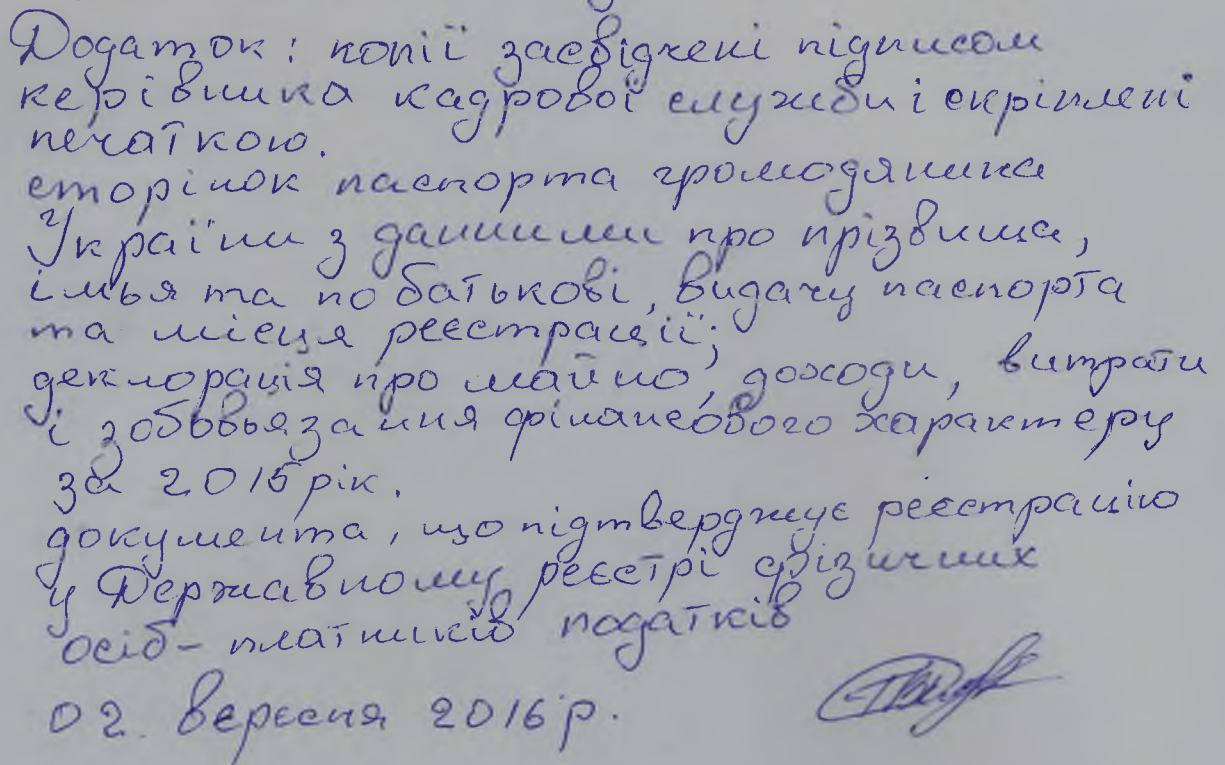 Додаток: копії засвідчені підписом
керівника кадрової служби і скріплені
печаткою.
сторінок паспорта громодянина
України з данними про прізвища,
імья та по батькові, видачу паспорта
та місця реєстрації;
деклорація про майно, доходи, витрати
і зобовьязання фінансового характеру
за 2015 рік.
документа, що підтверджує реєстрацію
у Державному реєстрі фізичних
осіб- платників податків
02. вересня 2016 р.